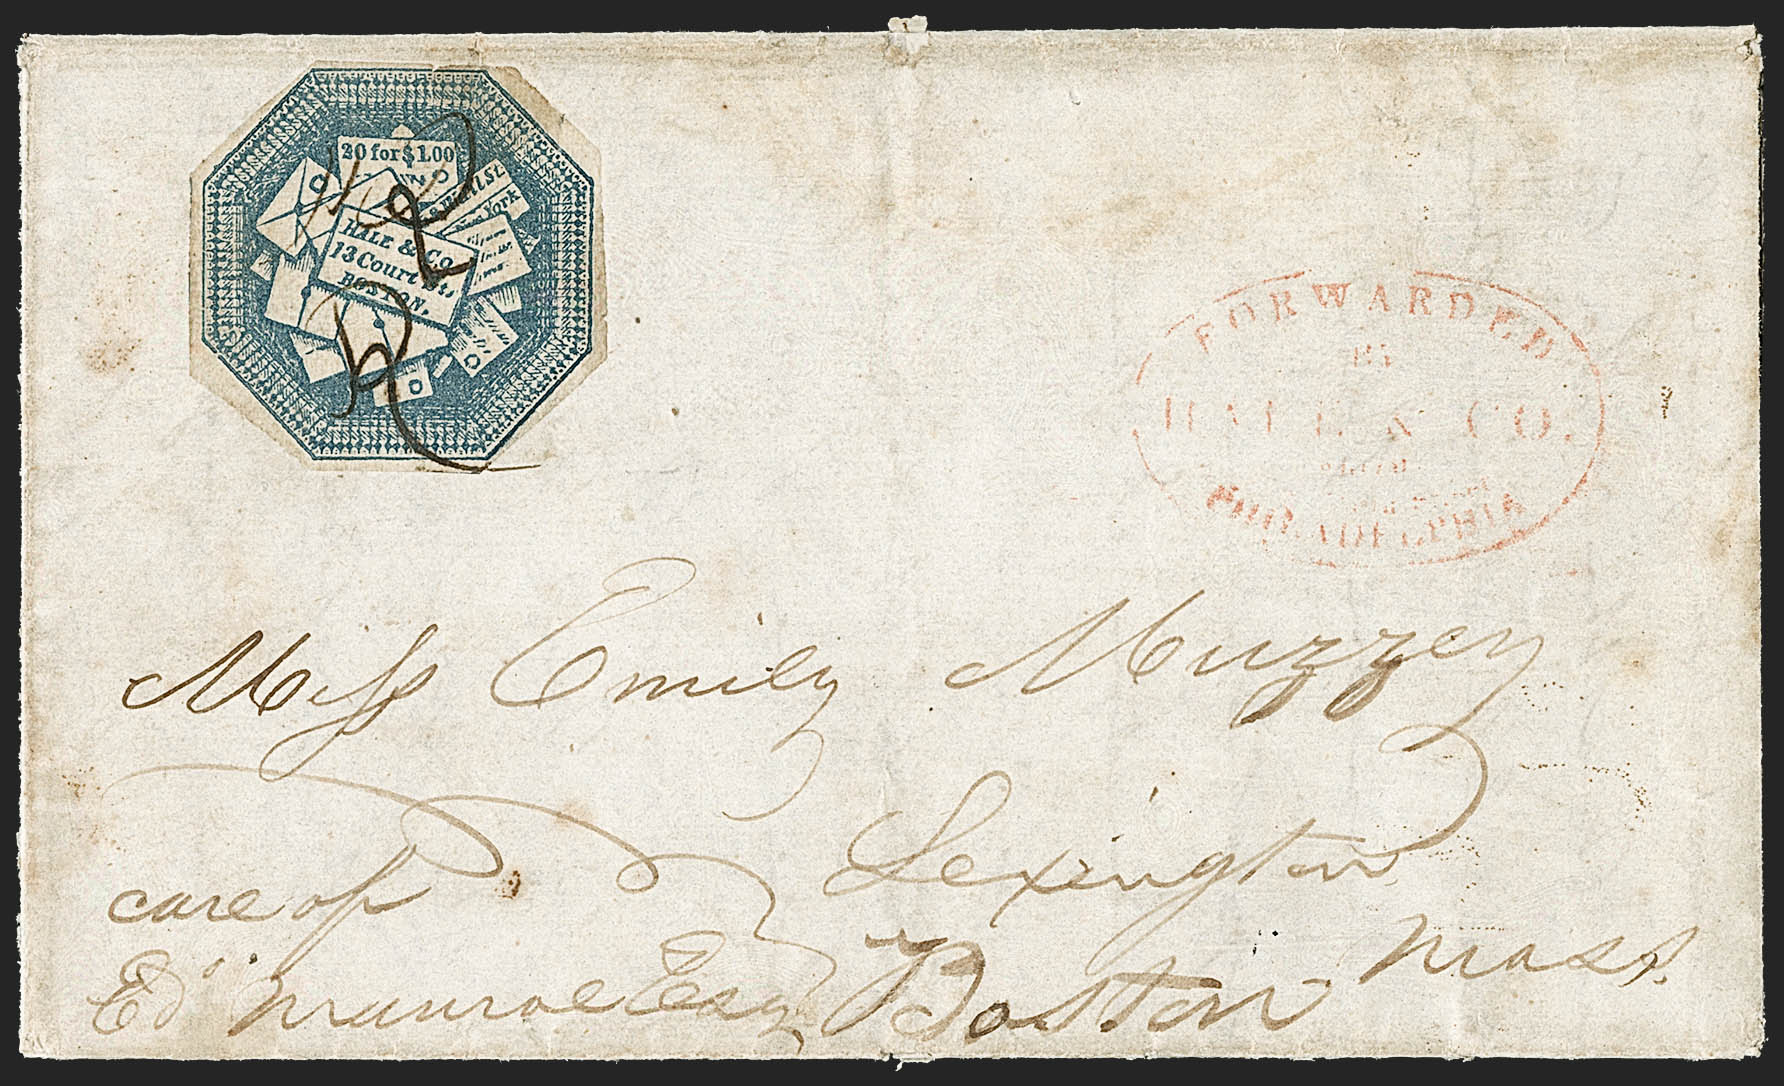 20 for $1.00
Wall St
New York
HALE & Co
13 Court Sts
BOSTON,
FORWARDED
BY
HALE & CO.
PHILADELPHIA
Miss Emily Muzzey
Lexington
Mass.
care of
Ed. Munroe Esq Boston